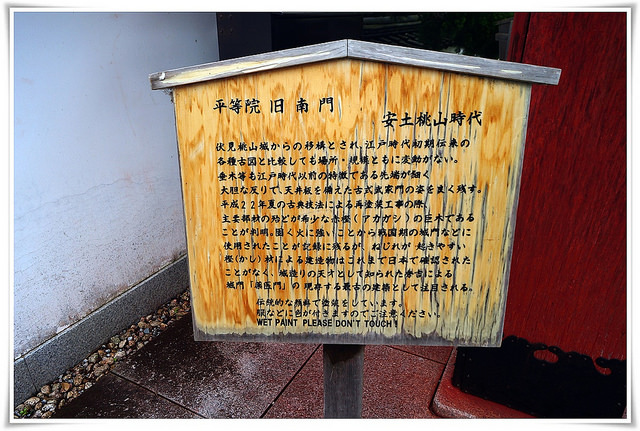 平等院 旧南門
安土桃山時代
伏見桃山城からの移構とされ、江戸時代初期伝来の
各種古図と比較しても場所・規模ともに変動がない。
垂木等も江戸時代以前の特徴である先端が細く
大胆な反りで、天井板を備えた古式武家門の姿を良く残す。
平成22年夏の古典技法による再塗装工事の際、
主要部材の殆どが希少な赤樫(アカガシ)の巨木である
ことが判明。固く火に強いことから戦国期の城門などに
使用されたことが記録に残るが、ねじれが起きやすい
樫(かし)材による建造物はこれまで日本で確認された
ことがなく、城造りの天才として知られた秀吉による
城門「薬医門」の現存する最古の建築として注目される。
伝統的な顔料で塗装をしています。
服などに色が付きますのでご注意ください。
WET PAINT PLEASE DON'T TOUCH!